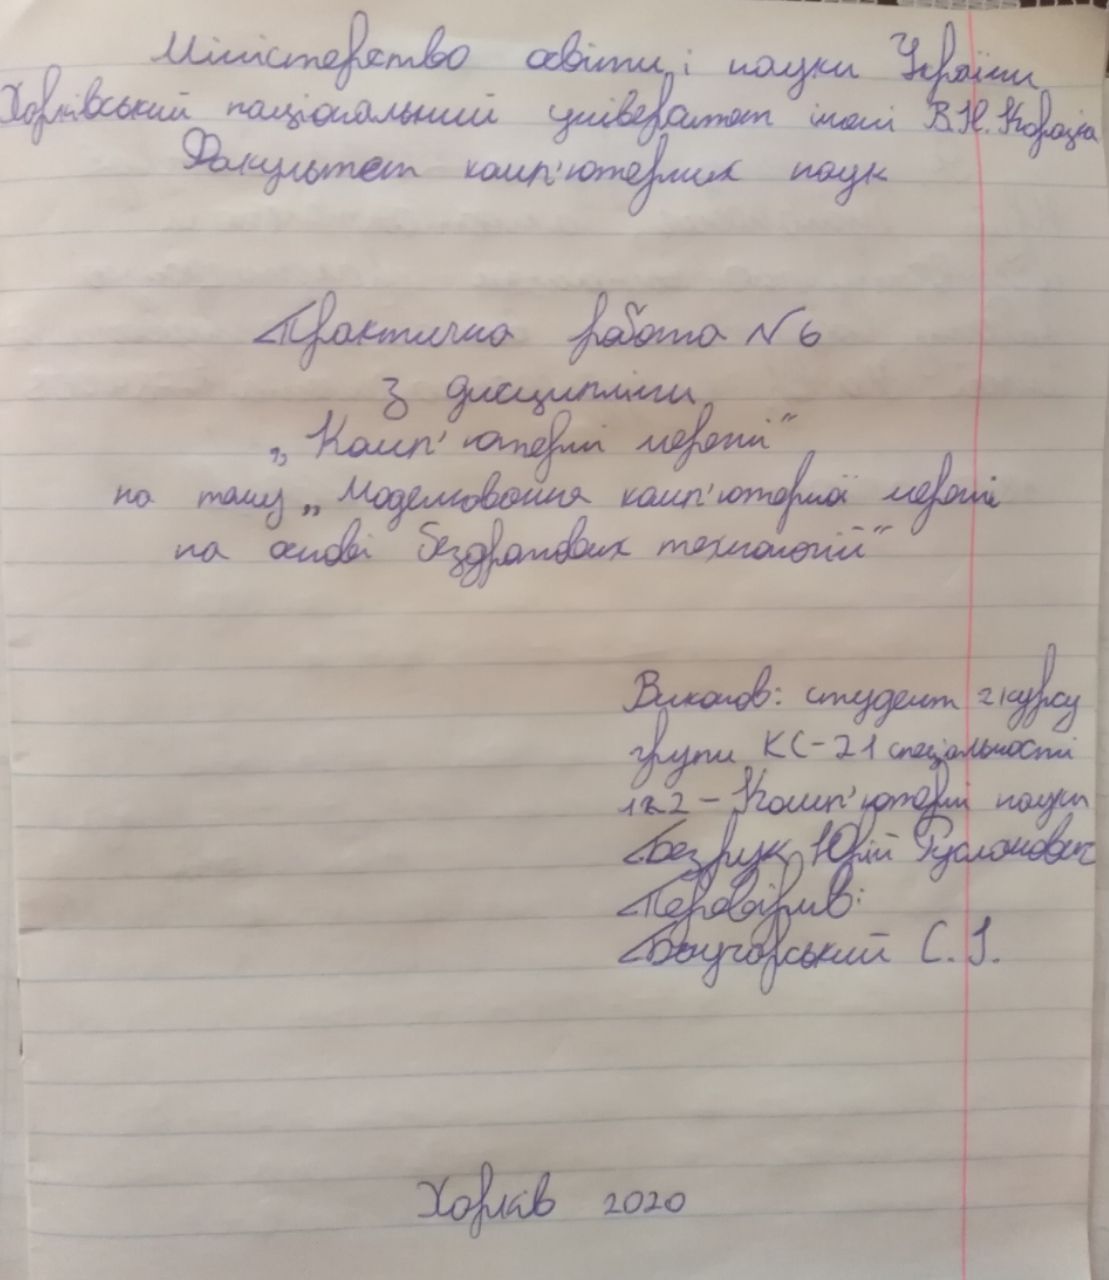 Міністерство освіти і науки України
Харківський національний університет імені В.Н. Каразіна
Факультет комп'ютерних наук
Практична работа N 6
З дисципліни
„Комп'ютерні мережі"
на тему „Моделювання комп'ютерної мережі
на основі бездротових технологій"
Виконав: студент 2 курсу
групи КС-21 спеціальності
122 - Комп'ютерні науки
Безрук Юрій Русланович
Перевірив:
С. І.
Харків 2020